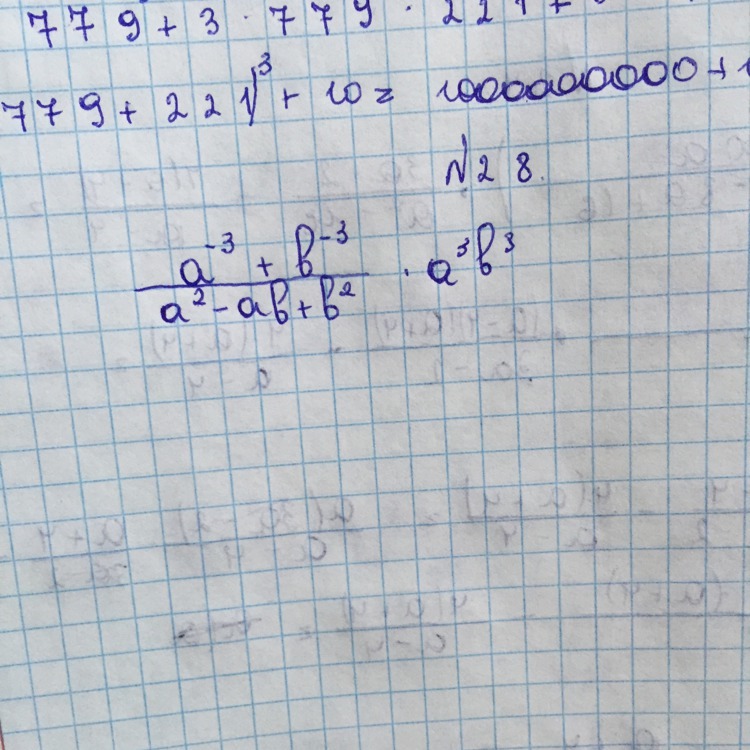 779 + 3 · 779 · 221 +
779 + 221)³ + 10 = 1000000000 + 1
№28.
a⁻³ + b⁻³ / a² - ab + b² · a³b³